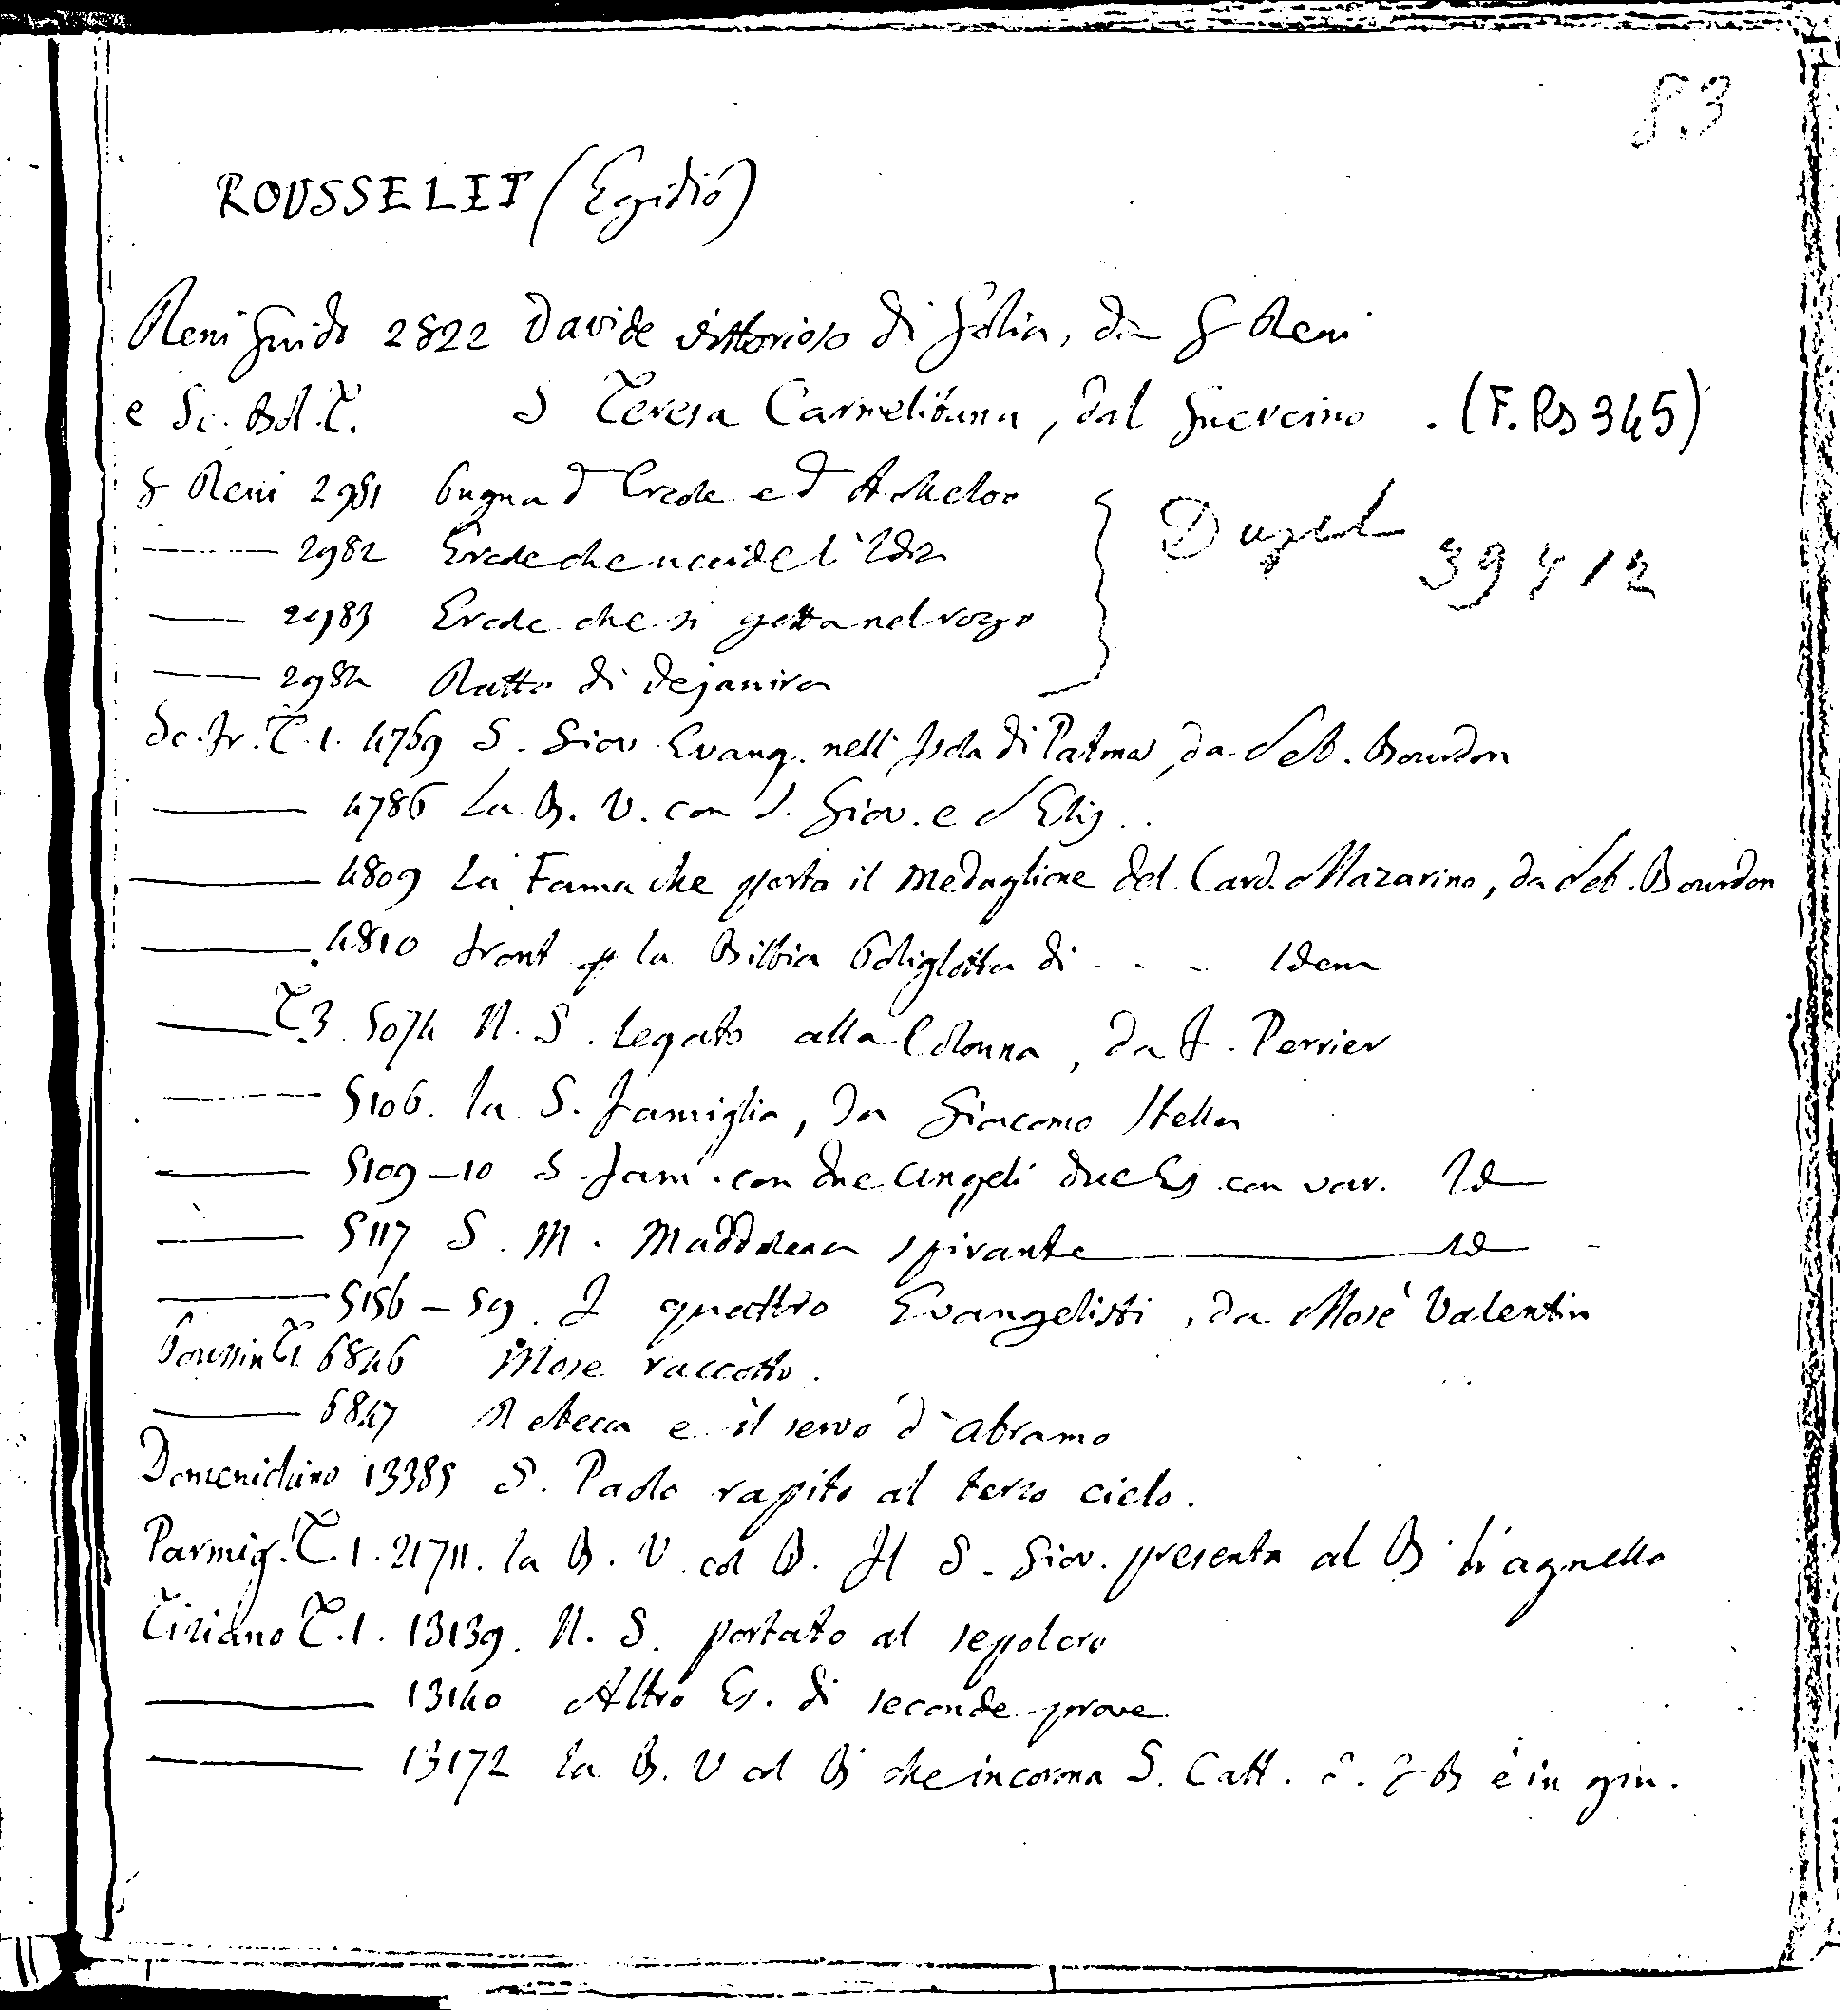 83
ROUSSELET (Egidio)
Reni Guido 2822 Davide vittorioso di Golia, da G Reni
e Sc. Bol. T. S Teresa Carmelitana, dal Guercino . (F. Rs 345)
G Reni 2981 Pugna d'Ercole e d'Acheloo
—— 2982 Ercole che uccide l'Idra
Dupl 39412
—— 2983 Ercole che si getta nel rogo
—— 2984 Ratto di Dejanira
Sc. Fr. T. 1. 4769 S. Giov Evang. nell'Isola di Patmos, da Seb. Bourdon
—— 4786 La B. V. con S. Giov. e S Elis..
—— 4809 La Fama che porta il medaglione del Card. Mazarino, da Seb. Bourdon
—— 4810 front p la Bibbia Poliglotta di - - - Idem
—— T.3. 5074 N. S. legato alla Colonna, da F. Perrier
—— 5106. la S. Famiglia, da Giacomo Stella
—— 5109-10 S. Fam. con due Angeli due Es con var. Id
—— 5117 S. M. Maddalena spirante —— Id
—— 5156-59. I quattro Evangelisti, da Mosè Valentin
Poussin T1. 6846 Mose raccolto.
—— 6847 Rebecca e il servo d'Abramo
Domenichino 13385 S. Paolo rapito al terzo cielo.
Parmig. T. 1. 21711. la B. V. col B. Il S. Giov. presenta al B. l'agnello
Tiziano T. 1. 13139. N. S. portato al sepolcro
—— 13140 Altro Es. di seconde prove
—— 13172 La B. V col B che incorona S. Catt. è in gin.